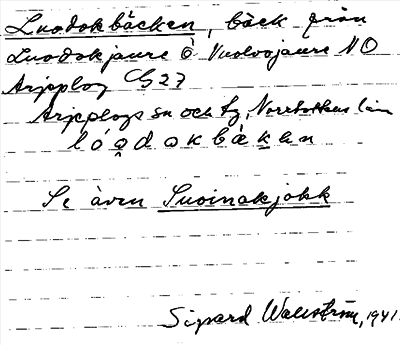 Luodokbäcken, bäck från
Luodokjaure ö Vuolvojaure NO
Arjeplog C 27
Arjeplogs sn och tg, Norrbottens län
lóọdokbäken
Se även Suoinakjokk
Sigvard Wallström, 1941.